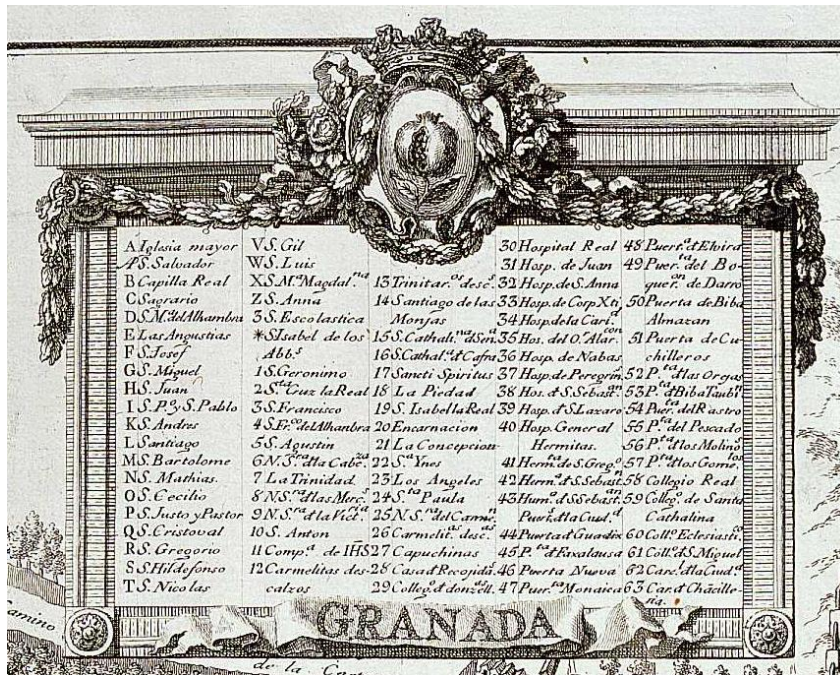 A Iglesia mayor
Æ S. Salvador
B Capilla Real
C Sagrario
D S. M.ª del Alhambra
E Las Angustias
F S. Josef
G S. Miguel
H S. Juan
I S. P.º y S. Pablo
K S. Andres
L Santiago
M S. Bartolome
N S. Mathias.
O S. Cecilio
P S. Justo y Pastor
Q S. Cristoval
R S. Gregorio
S S. Hildefonso
T S. Nicolas
V S. Gil
W S. Luis
X S. M.ª Magdal.na
Z S. Anna
3 S. Escolastica
* S Isabel de los
Abb.s
1 S. Geronimo
2 S.ta Cruz la Real
3 S. Francisco
4 S. Fr.co del Alhambra
5 S. Agustin
6 N. S.ra d la Cabe.za
7 La Trinidad
8 N. S.ra d las Merc.s
9 N. S.ra d la Vict.ria
10 S. Anton
11 Comp.ª de IHS
12 Carmelitas des-
calzos
13 Trinitar.os desc.s
14 Santiago de las
Monjas
15 S. Cathali.na d Sen.ª
16 S. Cathal.ª d Cafra
17 Sancti Spiritus
18 La Piedad
19 S. Isabel la Real
20 Encarnacion
21 La Concepcion
22 S.ª Ynes
23 Los Angeles
24 S.ta Paula
25 N. S.ra del Carme.n
26 Carmelit.as desc.as
27 Capuchinas
28 Casa d Recojid.s
29 Colleg.º d donzell.s
30 Hospital Real
31 Hosp. de Juan
32 Hosp. de S. Anna
33 Hosp. de Corp. Xti
34 Hosp. de la Cari.d
35 Hos. del O. Alar.con
36 Hosp. de Nabas
37 Hosp. de Peregrin.s
38 Hos. d S. Sebast.an
39 Hosp. d S. Lazaro
40 Hosp. General
Hermitas.
41 Herm.ta de S. Greg.º
42 Herm.ª d S. Sebast.n
43 Hum.º d S. Sebast.an
Puer.ª d la Ciud.ª
44 Puerta d Guadix
45 P.ta d Faxalausa
46 Puerta Nueva
47 Puer.ta Monaica
48 Puert.ª d Elvira
49 Puer.ta del Bo-
quer.on de Darro
50 Puerta de Biba
Almazan
51 Puerta de Cu-
chilleros
52 P.ta d las Orejas
53 P.ta d Biba Taubi.n
54 Puer.ta del Rastro
55 P.ta del Pescado
56 P.ta d los Molino.s
57 P.ta d los Gome.los
58 Collegio Real
59 Colleg.º de Santa
Cathalina
60 Coll.º Eclesiasti.co
61 Coll.º d S. Miguel
62 Carc.l d la Ciud.ª
63 Car. d Chãcille-
ria.
GRANADA
Camino
de la